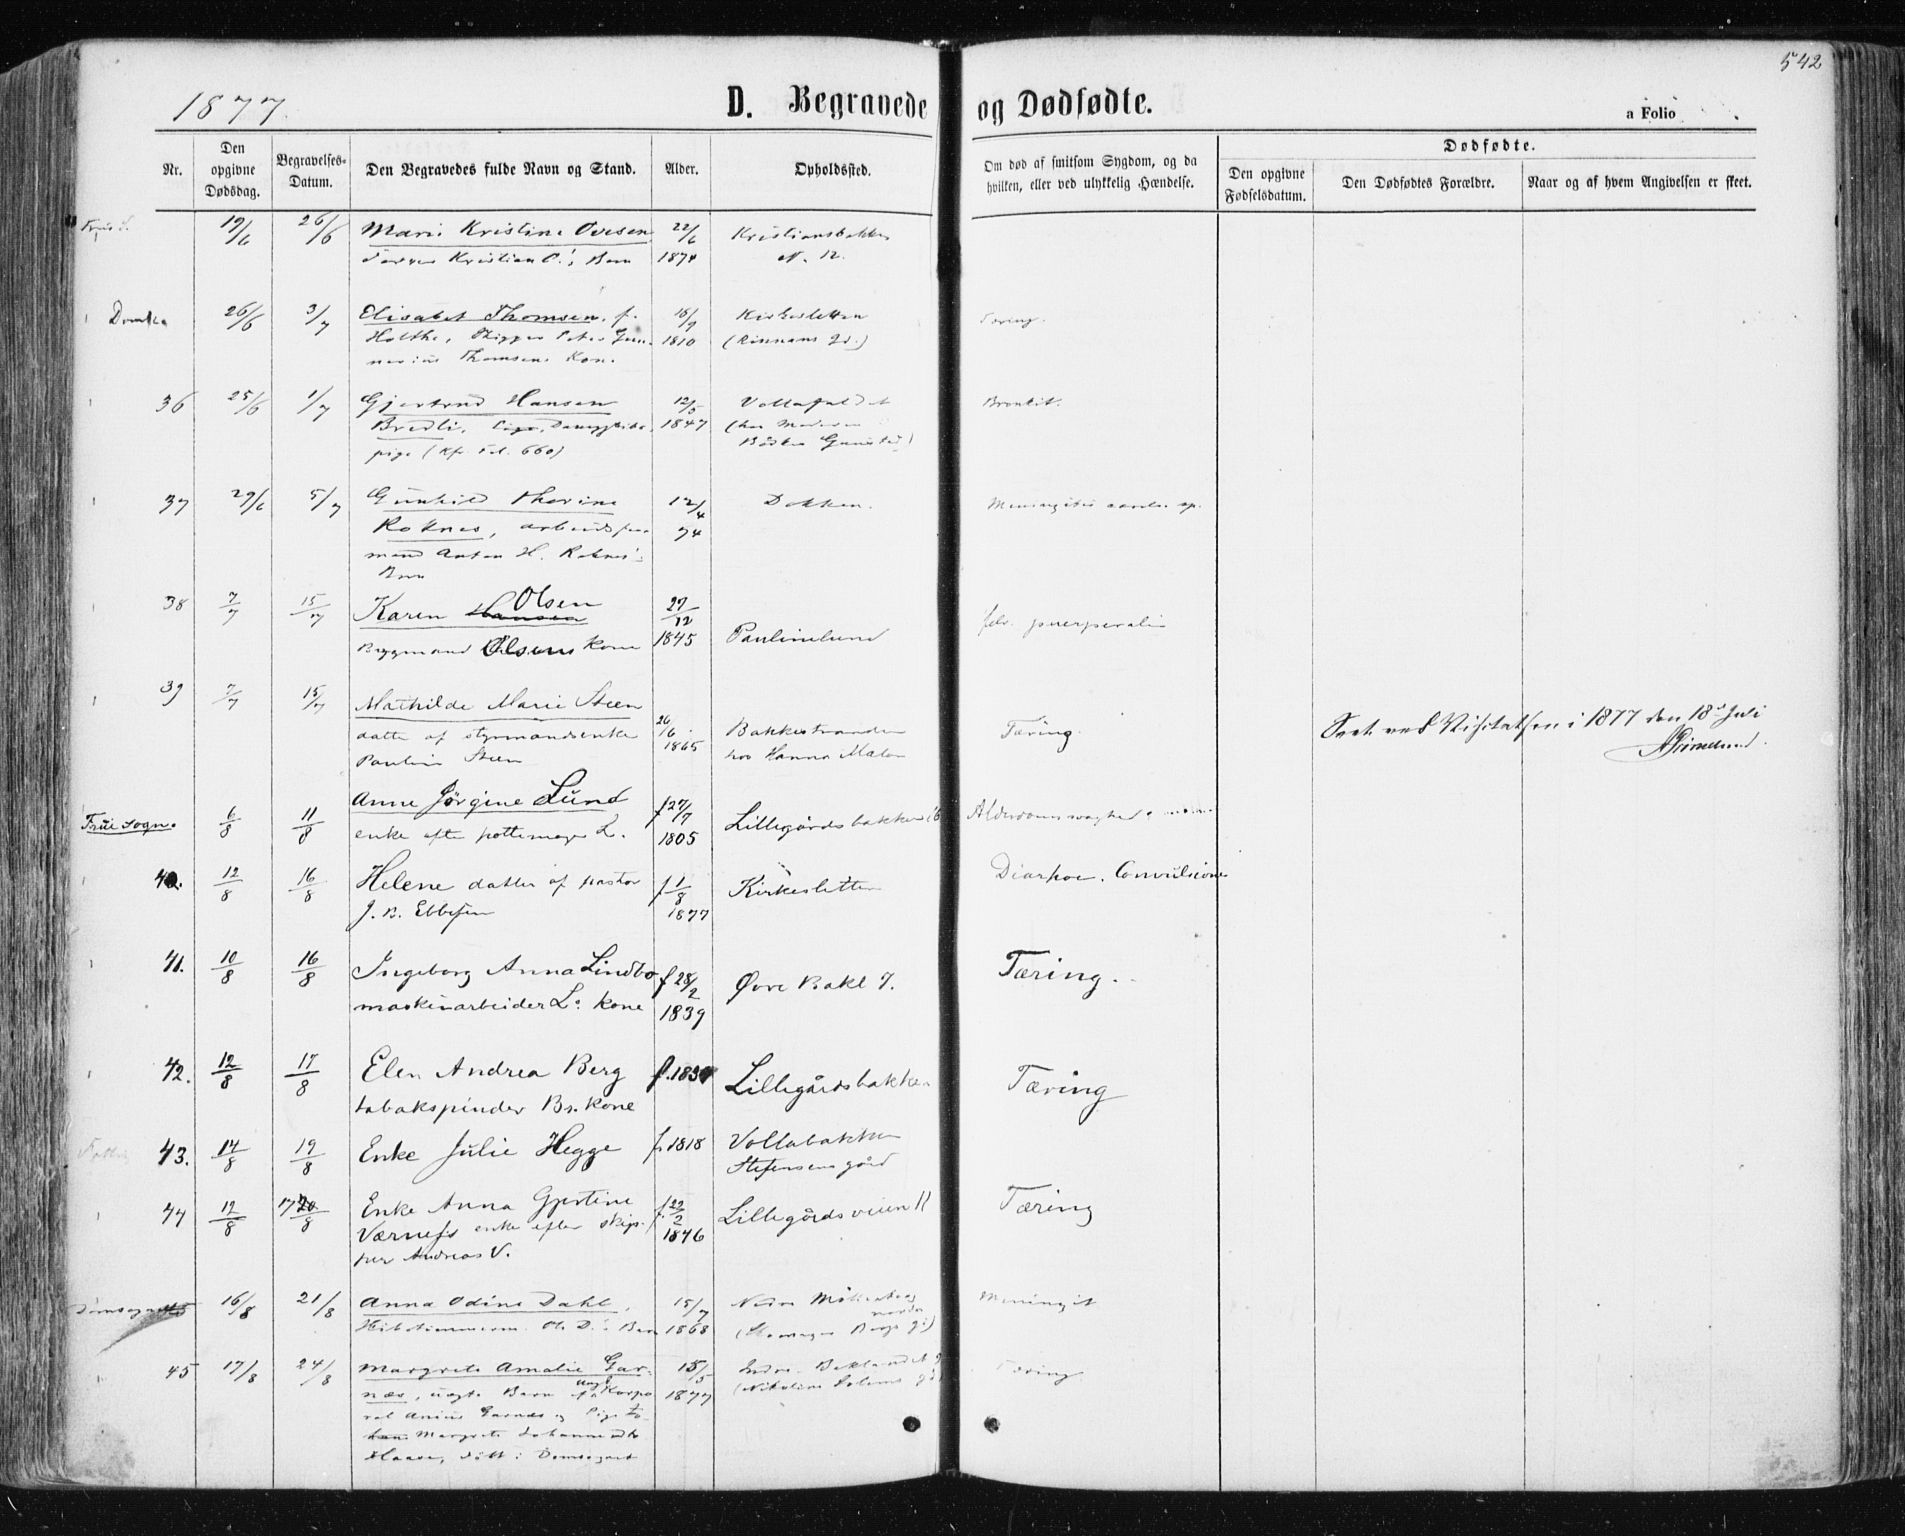 542
1877.
D. Begravede og Dødfødte.
a Folio
Nr.
Den opgivne Dødsdag.
Begravelses-Datum.
Den Begravedes fulde Navn og Stand.
Alder.
Opholdssted.
Om død af smitsom Sygdom, og da hvilken, eller ved ulykkelig Hændelse.
Dødfødte.
Den opgivne Fødselsdatum.
Den Dødfødtes Forældre.
Naar og af hvem Angivelsen er skeet.
19/6 26/6 Marie Kristine Oversen 22/6 Kristiansbakken
Kristian O.'s Barn 1874 N. 12.
Domk. 26/6 3/7 Elisabet Thomsen, f. 18/9 Kirkesletten Tæring.
Holthe, Peter Gun- 1810 (Rinnans gd.)
nerius Thomsens Kone.
36 25/6 1/7 Gjertrud Hansen 12/5 Vollafaldet Bronkit.
Bredli, 1847 (hos
pige (Kfr. Fol. 660)
37 29/6 5/7 Gunhild Thorine 12/4 Dokken. Meningitis
Roknes, arbeidsfor- 74
mand Anton H. Roknes's
Barn
38 7/7 15/7 Karen Hansen Olsen 27/12 febr. puerperalis
Byggmand Olsens kone 1845 Paulinelund
39 7/7 15/7 Mathilde Marie Steen
datter af styrmandsenke 26/6 1865 Bakkestranden Tæring.
Pauline Steen hos Hanna Malen
Seet ved Visitatsen i 1877 den 18de Juli
Grimelund.
Frue sogn. 6/8 11/8 Anne Jørgine Lund f 27/7 Lillegårdsbakken 16 Alderdomssvaghed
enke efter pottemager L. 1805
40. 12/8 16/8 Helene datter af pastor f 1/8 Kirkesletten Diarhoe. Convulsione
J. B. Ebbesen 1877
41. 10/8 16/8 Ingeborg Anna Lindbo f 28/2 Øvre Bakl 7. Tæring.
maskinarbeider L.s kone 1839
42. 12/8 17/8 Elen Andrea Berg Lillegårdsbakken Tæring
tobakspinder Bs. kone
43. 14/8 19/8 Enke Julie Hegge f. 1818 Vollabakken
Stefensens gård
44 12/8 17/8 Enke Anna Gjertine f. 22/2 Lillegårdsveien 11 Tæring
Værnefs enke efter skip- 1846
per Andreas V.
Domsognet 16/8 21/8 Anna Odine Dahl, 15/7 Nedre Meningit
Ole D.'s Barn 1868
45 17/8 24/8 Margrete Amalie Gar- 15/5 Indre Baklandet Tæring
næs, uægte Barn af Ungk. Korpo- 1877
ral Anius Garnæs og Pige Jo-
Margrete Johannesdtr
Haave, født i Domsognet